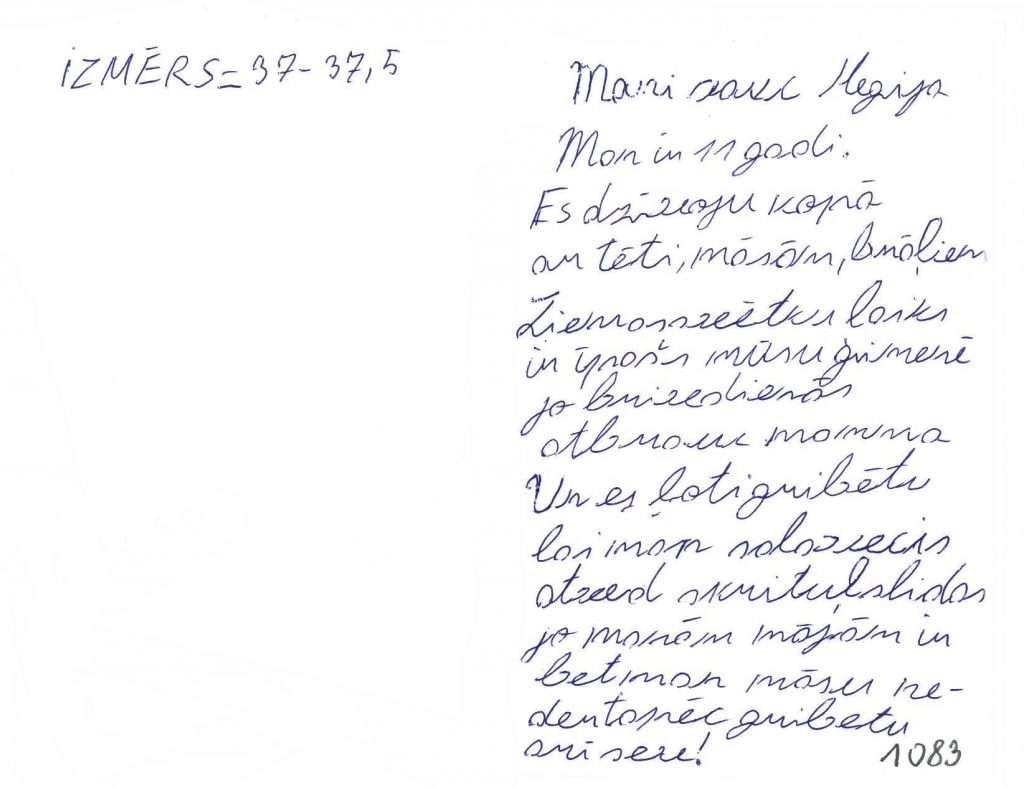 IZMĒRS = 37-37,5
Mani sauc Megija
Man ir 11 gadi.
Es dzīvoju kopā
ar tēti, māsām, brāļiem
Ziemassvētku laiks
ir īpašs mūsu ģimenē
jo brīvedienās
atbrauc mamma
Un es ļoti gribētu
lai man salavecis
atved skrituļslidas
jo manām māsām ir
bet man māsu ne-
der tapēc gribetu
arī seve!
1083